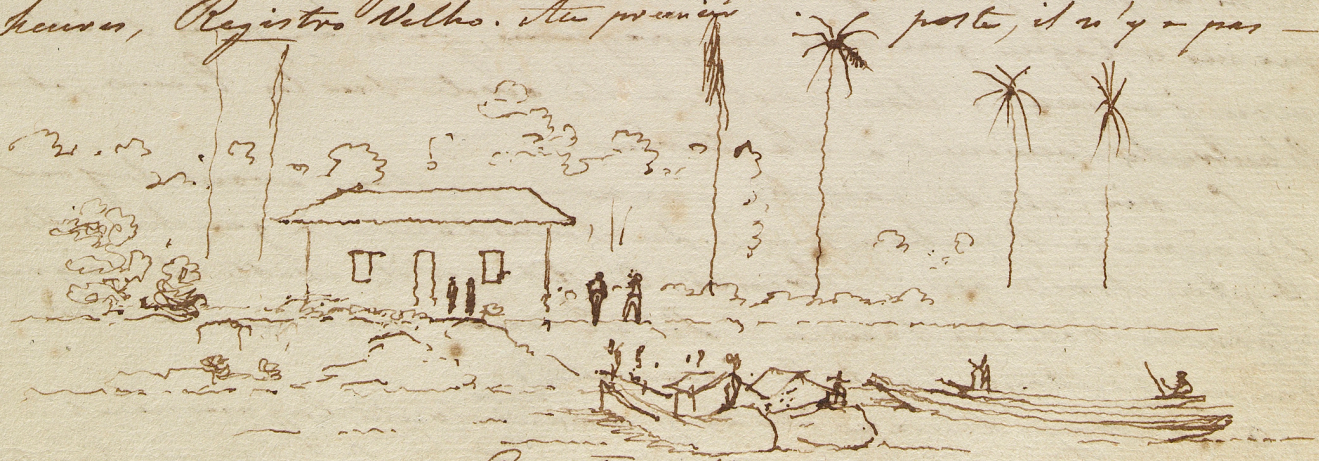 heures, Registro Velho. Au premier poste, il n'y a pas —